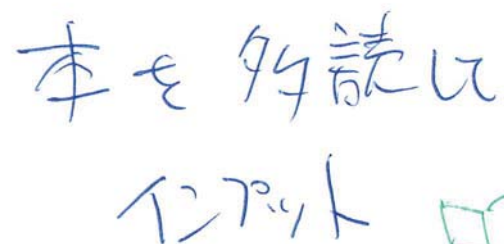 本を多読して
インプット